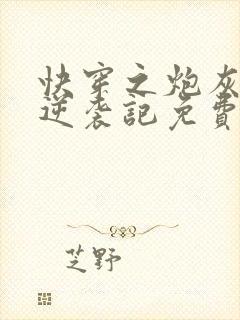 快穿之炮灰
逆袭記免費
芝野